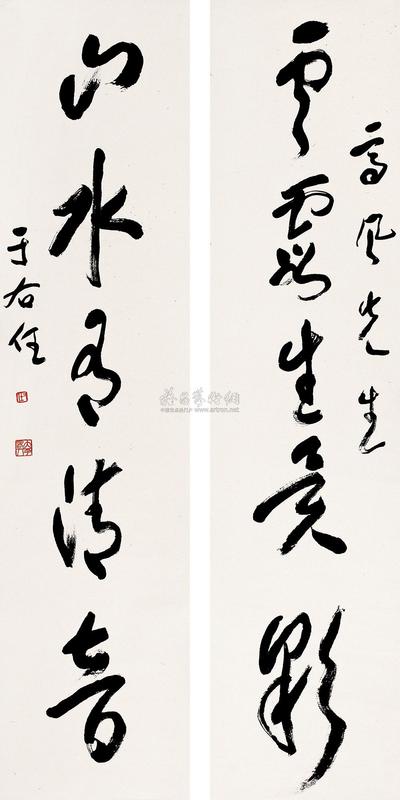 高風先生
雲霞生異彩
山水有清音
于右任
雅昌藝術網
www.artron.net